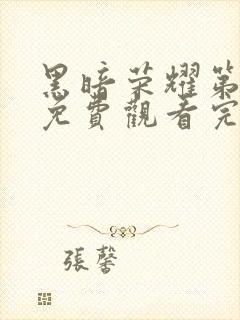 黑暗荣耀第
免費觀看完
張馨